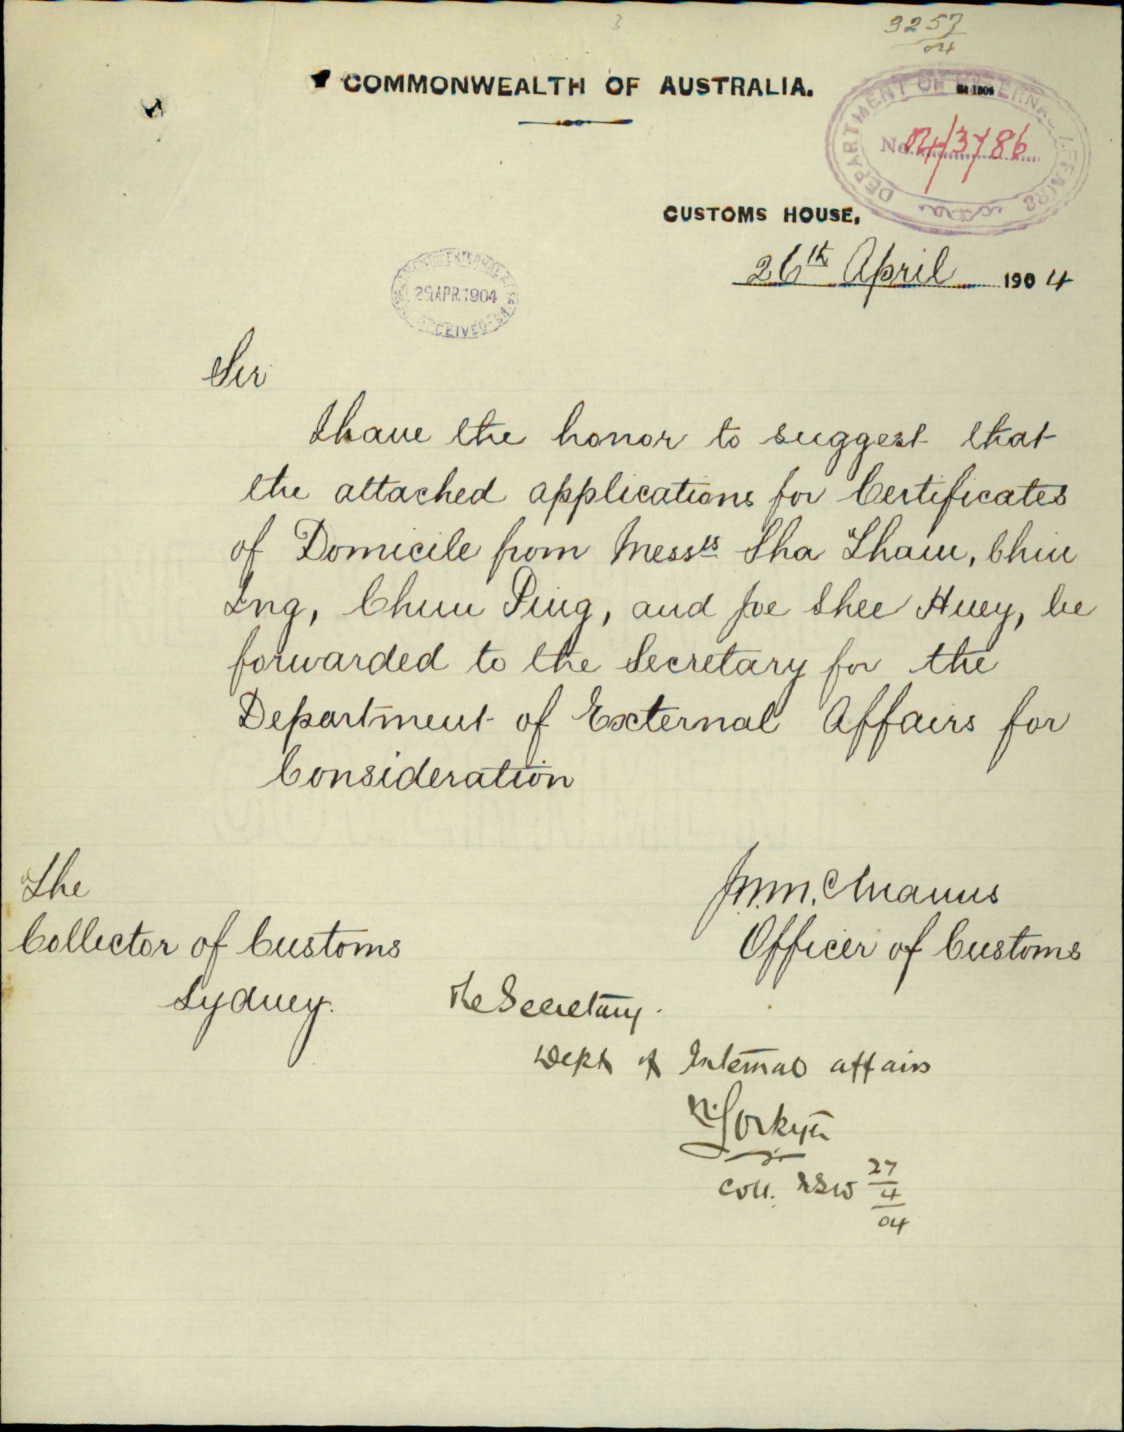 3257
04
COMMONWEALTH OF AUSTRALIA.
DEPARTMENT OF EXTERNAL AFFAIRS
No. 04/3786
CUSTOMS HOUSE,
26th April 1904
29 APR 1904
RECEIVED
Sir
I have the honor to suggest that
the attached applications for Certificates
of Domicile from Messrs Sha Tham, Chin
Ing, Chun Ping, and Joe Shee Huey, be
forwarded to the Secretary for the
Department of External Affairs for
Consideration
The
Collector of Customs
Sydney.
Officer of Customs
The Secretary.
Dept of External affairs
N. Lockyer
Coll. NSW 27
4
04